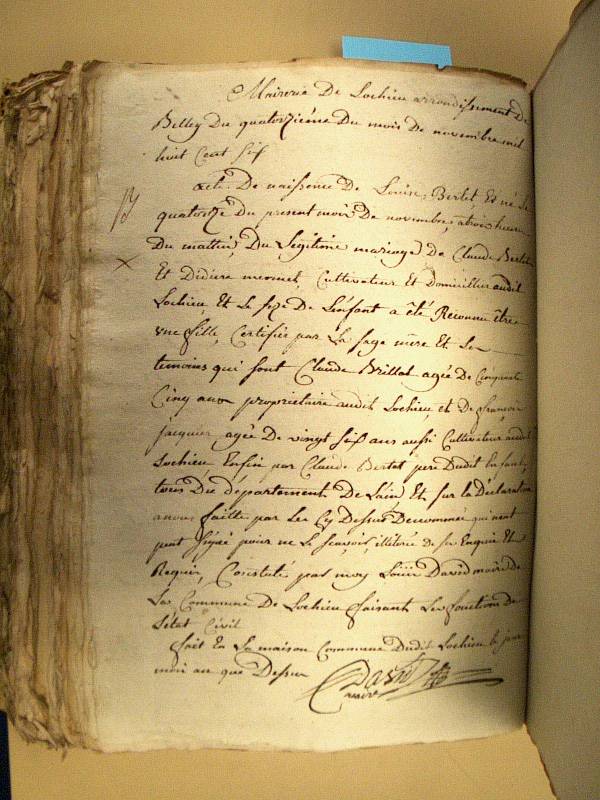 Mairerie De Lochieu arrondissement De
Belley Du quatorzieme Du mois De novembre mil
huit Cent six
acte De naissence De Louise Bertet Est né Le
quatorze Du present mois De novembre, a trois heure
Du mattin, Du Legitime mariage De Claude Bertet
Et Didiere meonnet, Cultivateur Et Domicillier audit
Lochieu, Et Le sexe De Lenfant a été Reconnu être
une fille, Certifiée par La sage mère Et Se
temoins qui sont Claude Brillat agée De Cinquante
Cinq ans proprietaire audit Lochieu, et De françois
jacquier agée De vingt six ans aussi Cultivateur audit
Lochieu, Enfin par Claude Bertet peré Dudit Enfant,
tous Du département De Lain Et sur la Déclaration
a nous faitte par Les Cy Dessus Denommée qui nont
peut signé pour ne Le scavoir, illitérée de Ser Enquin Et
Requir, Constaté par moy Loüis David maire De
La Commune De Lochieu faisant Les fonction De
Letat Civil
fait En La maison Commune Dudit Lochieu le jour
mois an que Dessus
David
maire